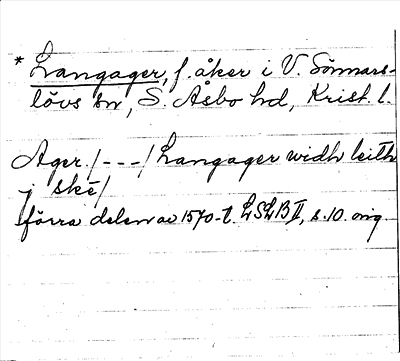 * Langager, f. åker i V. Sönnars-
lövs sn, S. Åsbo hd, Krist. l.
Ager /---/ Langager widh leith
j ske/
förra delen av 1570-t. LSLB II, s. 10. orig.